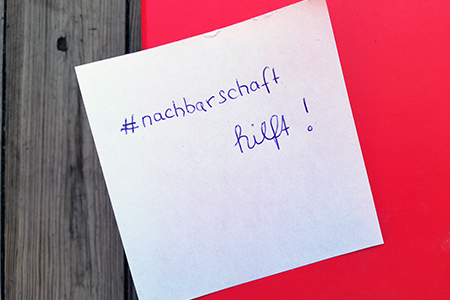 #nachbarschaft
hilft !